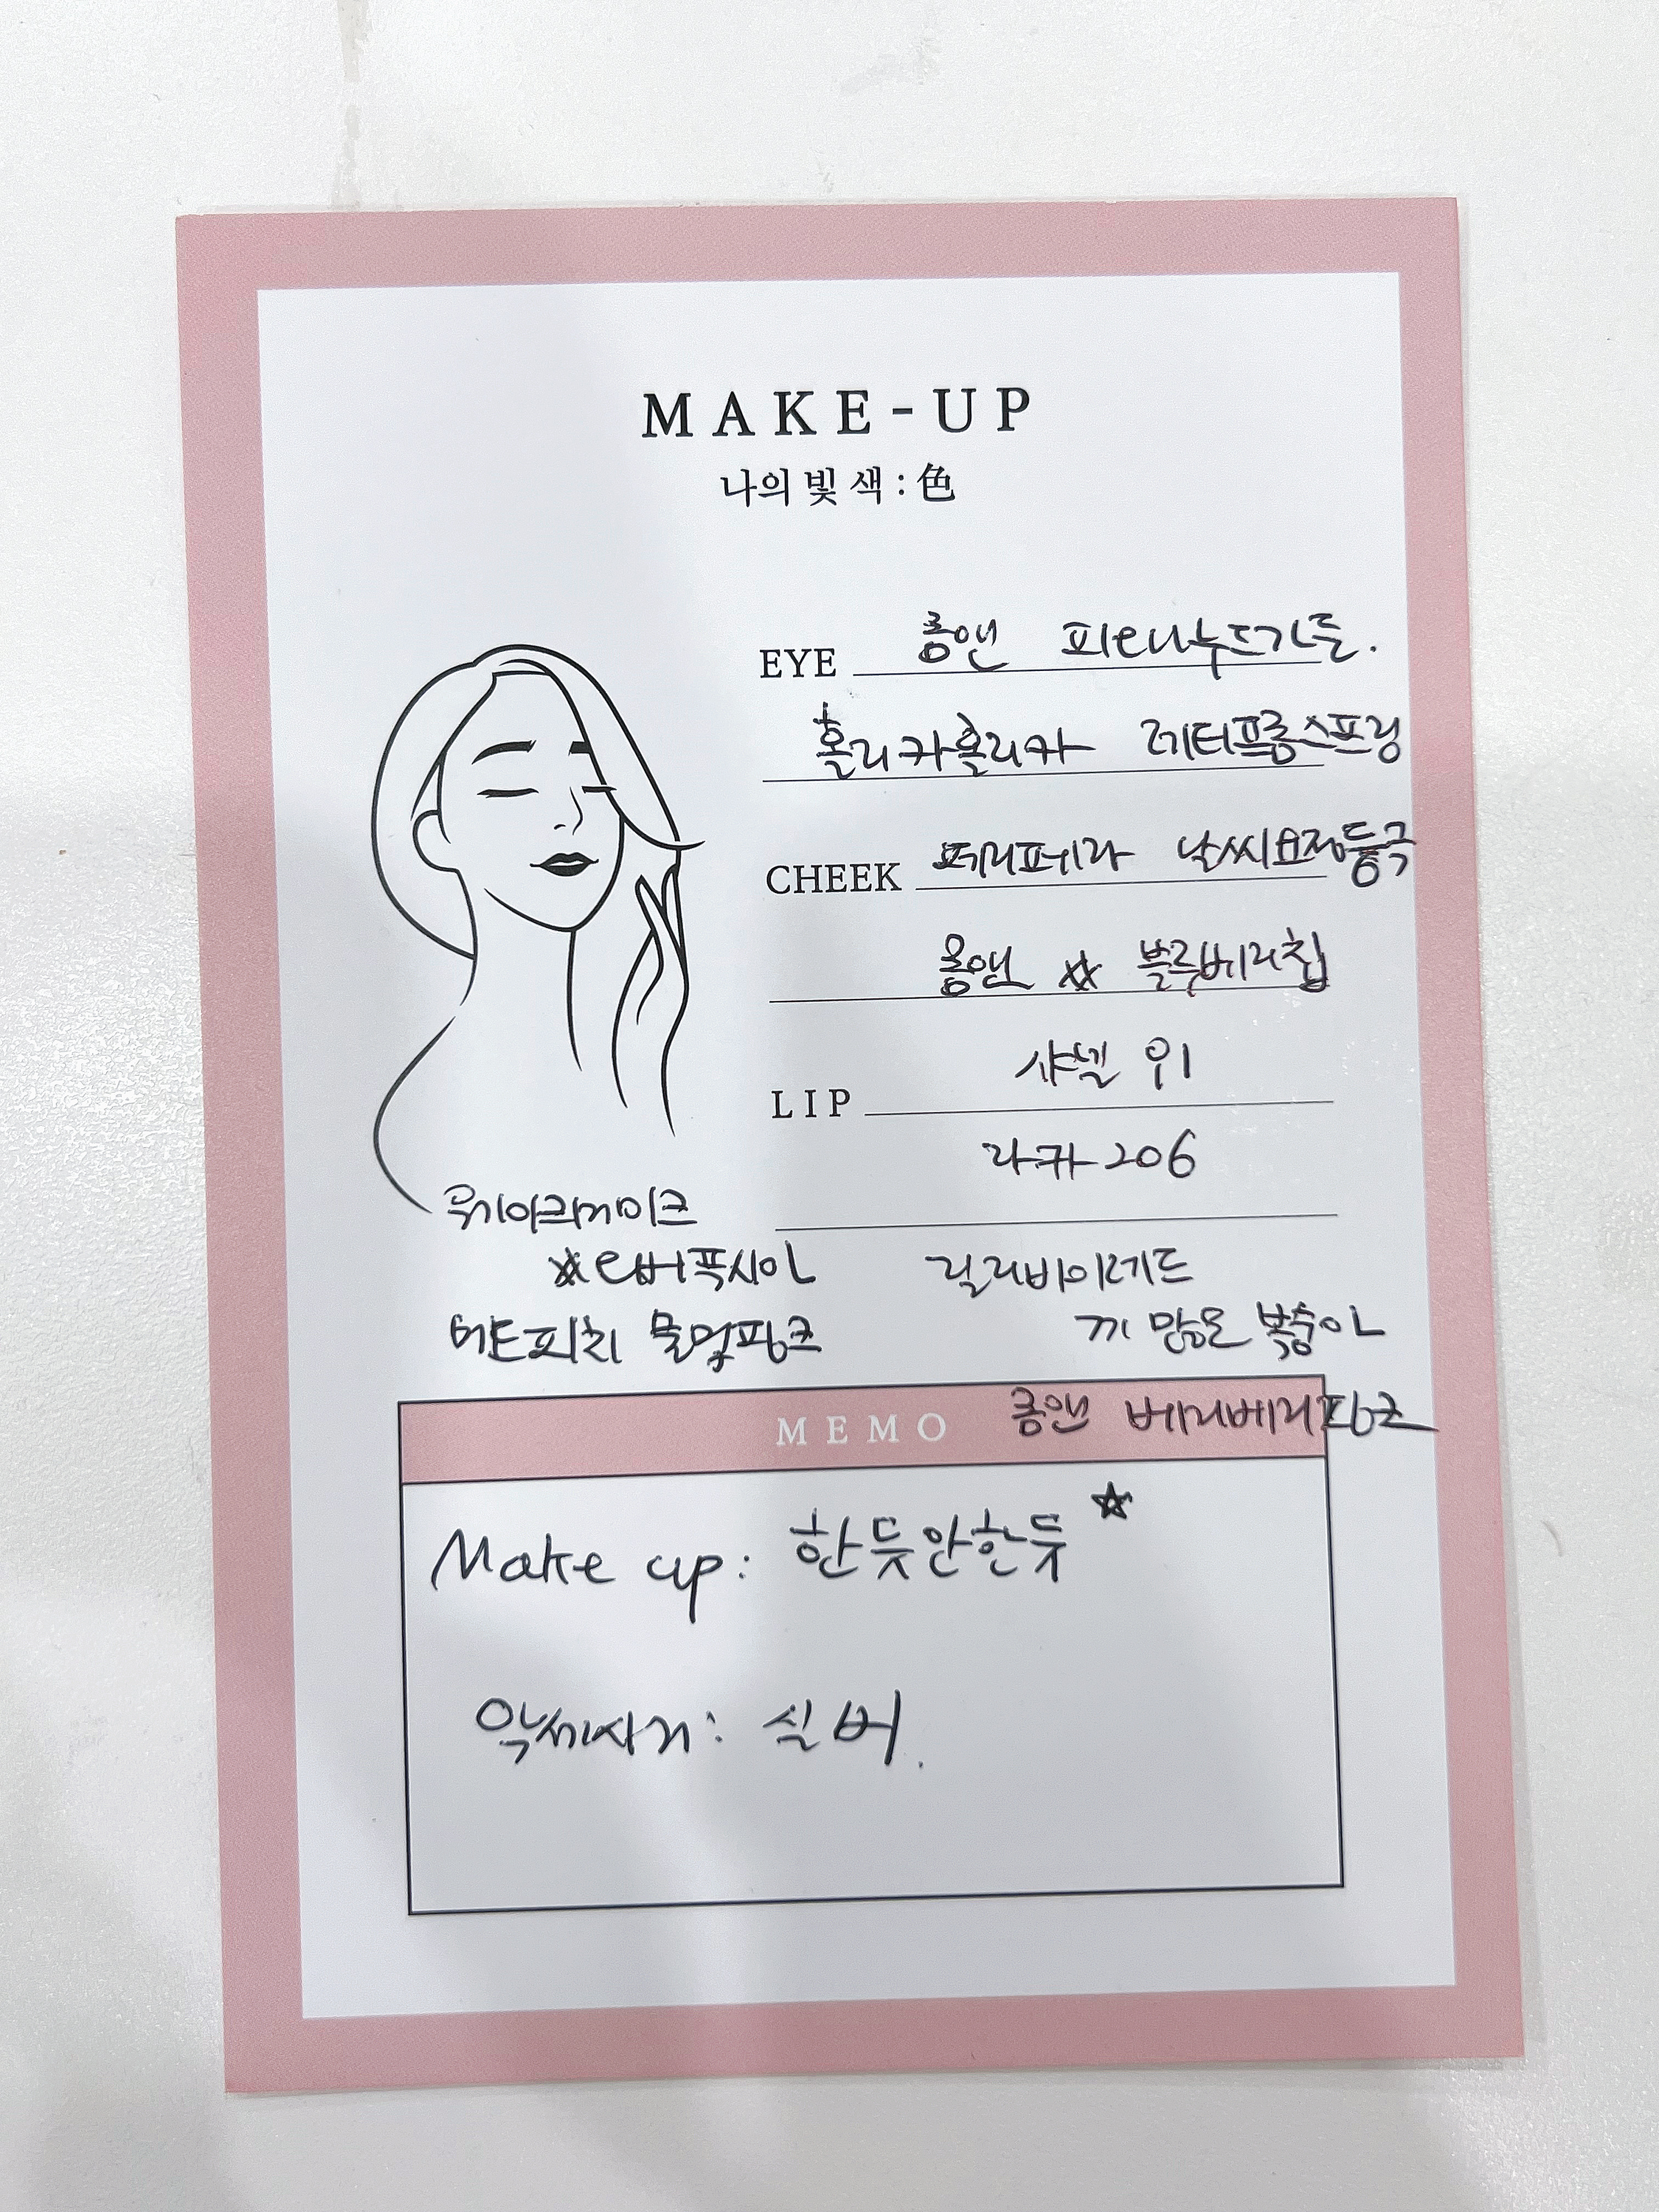 MAKE-UP
나의 빛 색 : 色
EYE 롬앤 피오니누드가든.
홀리카홀리카 레터프롬스프링
CHEEK 페리페라 날씨요정등극
롬앤 ☆ 블루베리칩
샤넬 위
LIP
라카 206
위아크메이크
☆ 에버퓩시아
릴리바이레드
머트피치 물먹핑크
끼 많은 복숭아
MEMO
롬앤 베리베리핑크
Make up: 한듯안한듯 ☆
악세사리: 실버.